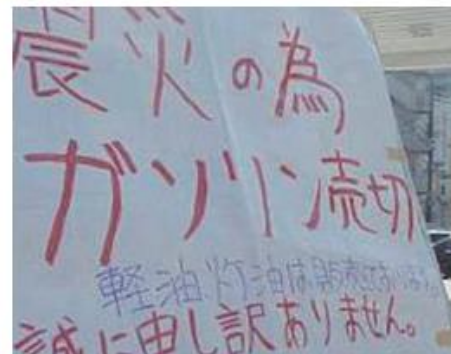 震災の為
ガソリン売切
軽油灯油は販売しております。
誠に申し訳ありません。